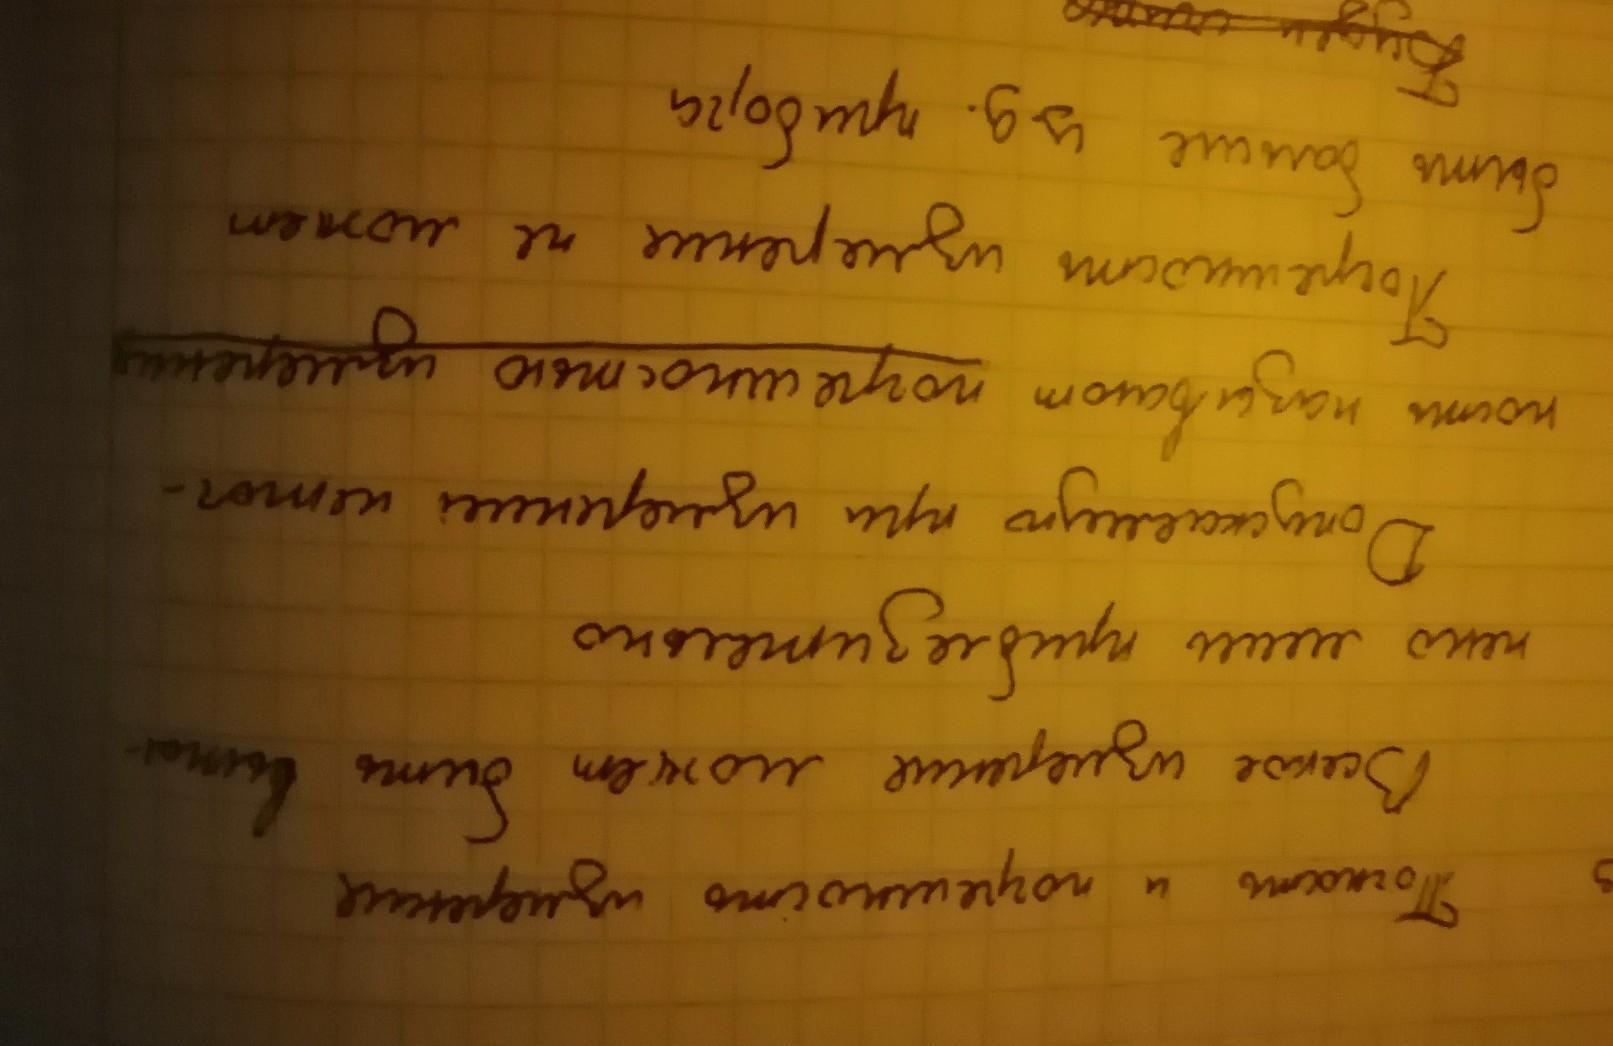 Точность и погрешность измерение
Всякое измерение может быть выпол-
нено лишь приблезительно
Допускаемую при измерений неточ-
ность называют погрешностью измерения
Погрешность измерение не может
быть больше ц.д. прибора